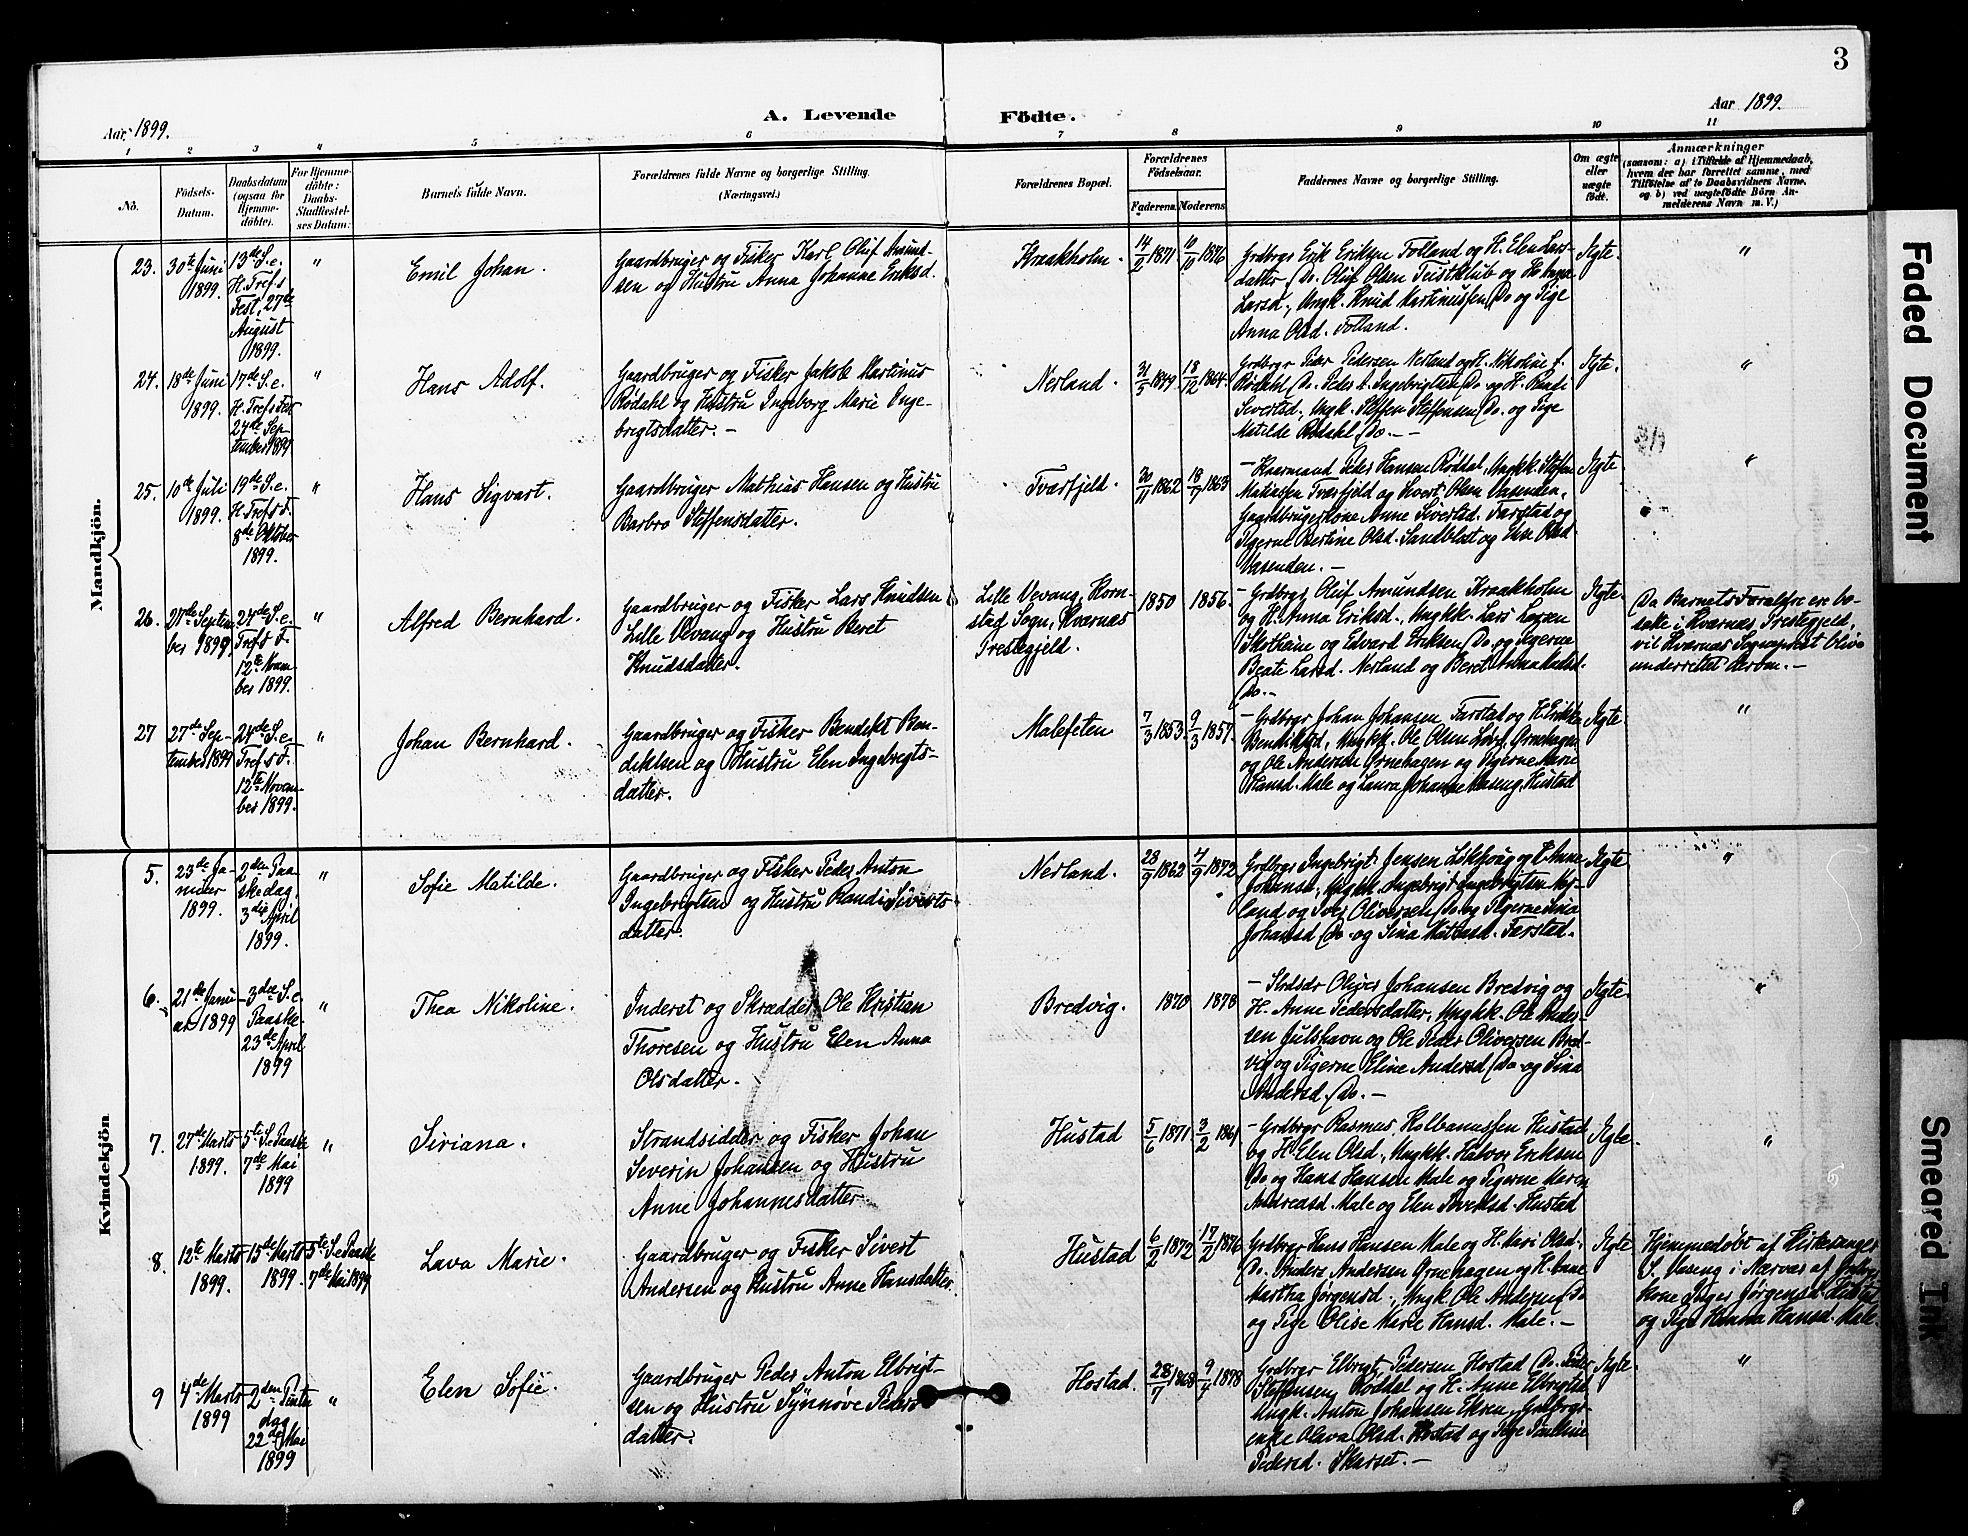 3
Aar 1899.
A. Levende
Födte.
Aar 1899.
1 2 3 4 5 6 7 8 9 10 11
No.
Födsels-
Datum.
Daabsdatum
(ogsaa for
Hjemme-
döbte).
For Hjemme-
döbte:
Daabs-
Stadfæstel-
ses Datum:
Barnets fulde Navn.
Forældrenes fulde Navne og borgerlige Stilling.
(Næringsvei.)
Forældrenes Bopæl.
Forældrenes
Födselsaar.
Faderens.
Moderens
Faddernes Navne og borgerlige Stilling.
Om ægte
eller
uægte
födt.
Anmærkninger
(saasom: a) i Tilfælde af Hjemmedaab,
hvem der har forrettet samme, med
Tilföielse af to Daabsvidners Navne,
og b) ved uægtefödte Börn An-
melderens Navn m. V.)
Mandkjön.
23.
30te Juni
1899.
13de S. e.
H. Tref.s
Fest, 27de
August
1899.
"
Emil Johan.
Gaardbruger og Fisker Karl Oluf Amund-
sen og Hustru Anna Johanne Eriksd.
Kraakholm.
14/2 1871
10/10 1876
Grdbrgr Erik Eriksen Folland og H. Elen Lars-
datter Do. Oluf Olsen Teistklub og H.
Larsd., Ungk. Knud Martinussen Do og Pige
Anna Olsd. Folland.
Ægte.
"
24.
18de Juni
1899.
17de S. e.
H. Tref.s Fest
24de Sep-
tember 1899
"
Hans Adolf.
Gaardbruger og Fisker Jakob Martinus
Rødahl og Hustru Ingeborg Marie Inge-
brigtsdatter. -
Nerland.
18/12 1864.
Grdbrgr Peder Pedersen Nerland og H. Nikoline f.
Rødahl Do. Peder A. Ingebrigtsen Do. og H. Randi
Sivertsd., Ungk. Steffen Steffensen Do. og Pige
Matilde Rødahl Do. -
Ægte.
"
25.
10de Juli
1899.
19de S. e.
H. Tref.s F.
8de Oktober
1899.
"
Hans Sigvart.
Gaardbruger Mathias Hansen og Hustru
Barbro Steffensdatter.
Tværfjeld.
30/11 1862
18/7 1863
- Kaarmand Peder Hansen Røddal, Ungkk. Steffen
Matiassen Tværfjeld og Sivert Olsen Vasenden,
Gaardbrugerkone Anne Sivertsd. Farstad og
Pigerne Bertine Olsd. Sandblost og Else Olsd.
Vasenden. -
Ægte.
"
26.
21de Septem-
ber 1899.
24de S. e.
Tref.s F.
12te Novem-
ber 1899.
"
Alfred Bernhard.
Gaardbruger og Fisker Lars Knudsen
Lille Vevang og Hustru Beret
Knudsdatter.
Lille Vevang, Korn-
stad Sogn, Kværnes
Prestegjeld.
1850
1856.
- Grdbrgr. Oluf Amundsen Kraakholm
og H. Anna Eriksd., Ungkk. Lars Larsen
Skotheim og Edvard Eriksen Do. og Pigerne
Beate Larsd. Nerland og Beret Anna Knudsd.
Do. -
Ægte.
Da Barnets Forældre ere bo-
satte i Kværnes Prestegjeld,
vil Kværnes Sogneprest blive
underrettet herom. -
27
27de Sep-
tember 1899
24de S. e.
Tref.s F.
12te Novem-
ber 1899.
"
Johan Bernhard.
Gaardbruger og Fisker Bendikt Ben-
diktsen og Hustru Elen Ingebrigts-
datter.
Malefeten
7/3 1853.
9/3 1857.
- Grdbrgr Johan Johansen Farstad og H.
Bendiktsd., Ungkk. Ole Olsen Ørnehagen
og Ole Andersen Ørnehagen og Pigerne Marie
Hansd. Male og Laura Johanne Vaseng, Hustad
Ægte.
"
Kvindekjön
5.
23de Ja-
nuar
1899.
2den Paa-
skedag,
3die April
1899.
"
Sofie Matilde.
Gaardbruger og Fisker Peder Anton
Ingebrigtsen og Hustru Randi Siverts-
datter.
Nerland.
28/9 1862
4/9 1872
Grdbrgr Ingebrigt Jensen og H. Anne
Johansd., Ungkk. Ingebrigt Ingebrigtsen Ner-
land og Iver Oliversen Do. og Pigerne
Johansd. Do. og Sina Farstad.
Ægte
"
6.
21de Janu-
ar 1899
3die S. e.
Paaske
23de April
1899
"
Thea Nikoline.
Inderst og Skrædder Ole Kristian
Thoresen og Hustru Elen Anna
Olsdatter.
Bredvig.
1870
1878
- Skræder Oliver Johansen Bredvig og
H. Anne Pedersdatter, Ungkk. Ole Ander-
sen Julshavn og Ole Peder Oliversen Bred-
vig og Pigerne Eline Andersd. Do. og Lina
Andersd. Do. -
Ægte.
"
7.
27de Marts
1899.
5te S. e. Paaske
7de Mai
1899
"
Siriana.
Strandsidder og Fisker Johan
Severin Johansen og Hustru
Anne Johannesdatter
Hustad
5/6 1871.
3/2 1861
- Grdbrgr Rasmus Kolbanussen Hustad
og H. Elen Olsd., Ungkk. Halvor Eriksen
Do og Hans Hansen Male og Pigerne Maren
Andreasd. Male og Elen Hustad
Ægte.
"
8.
12te Marts
1899.
15de Marts
1899.
5te S. e. Paaske
7de Mai 1899
Lava Marie.
Gaardbruger og Fisker Sivert
Andersen og Hustru Anne Hansdatter.
Hustad
6/2 1872
17/2 1876
Grdbrgr Hans Hansen Male og H. Mari Olsd.,
Do. Anders Andersen Ørnehagen og H. Lave
Martha Jørgensd., Ungk. Ole Andersen Do
og Pige Olise Marie Hansd. Male. -
Ægte
Hjemmedøbt af Kirkesanger
S. Vaseng i Nærvær af Grdbrgr
kone Inger Jørgensd. Hustad
og Pige Hanna Hansd. Male.
9
4de Marts
1899
2den Pintse-
dag
22de Mai
1899
"
Elen Sofie.
Gaardbruger Peder Anton Elbrigt-
sen og Hustru Synnøve Peders-
datter.
Hostad.
28/7 1868
9/4 1878
Grdbrgr Elbrigt Pedersen Hostad Do. Peder
Steffensen Røddal og H. Anne Elbrigtsd.
Ungk. Anton Johansen Ekren, Grdbrgr-
enke Olava Olsd. Hostad og Pige Pauline
Pedersd. Skarset. -
Ægte.
"
Faded Document
Smeared Ink